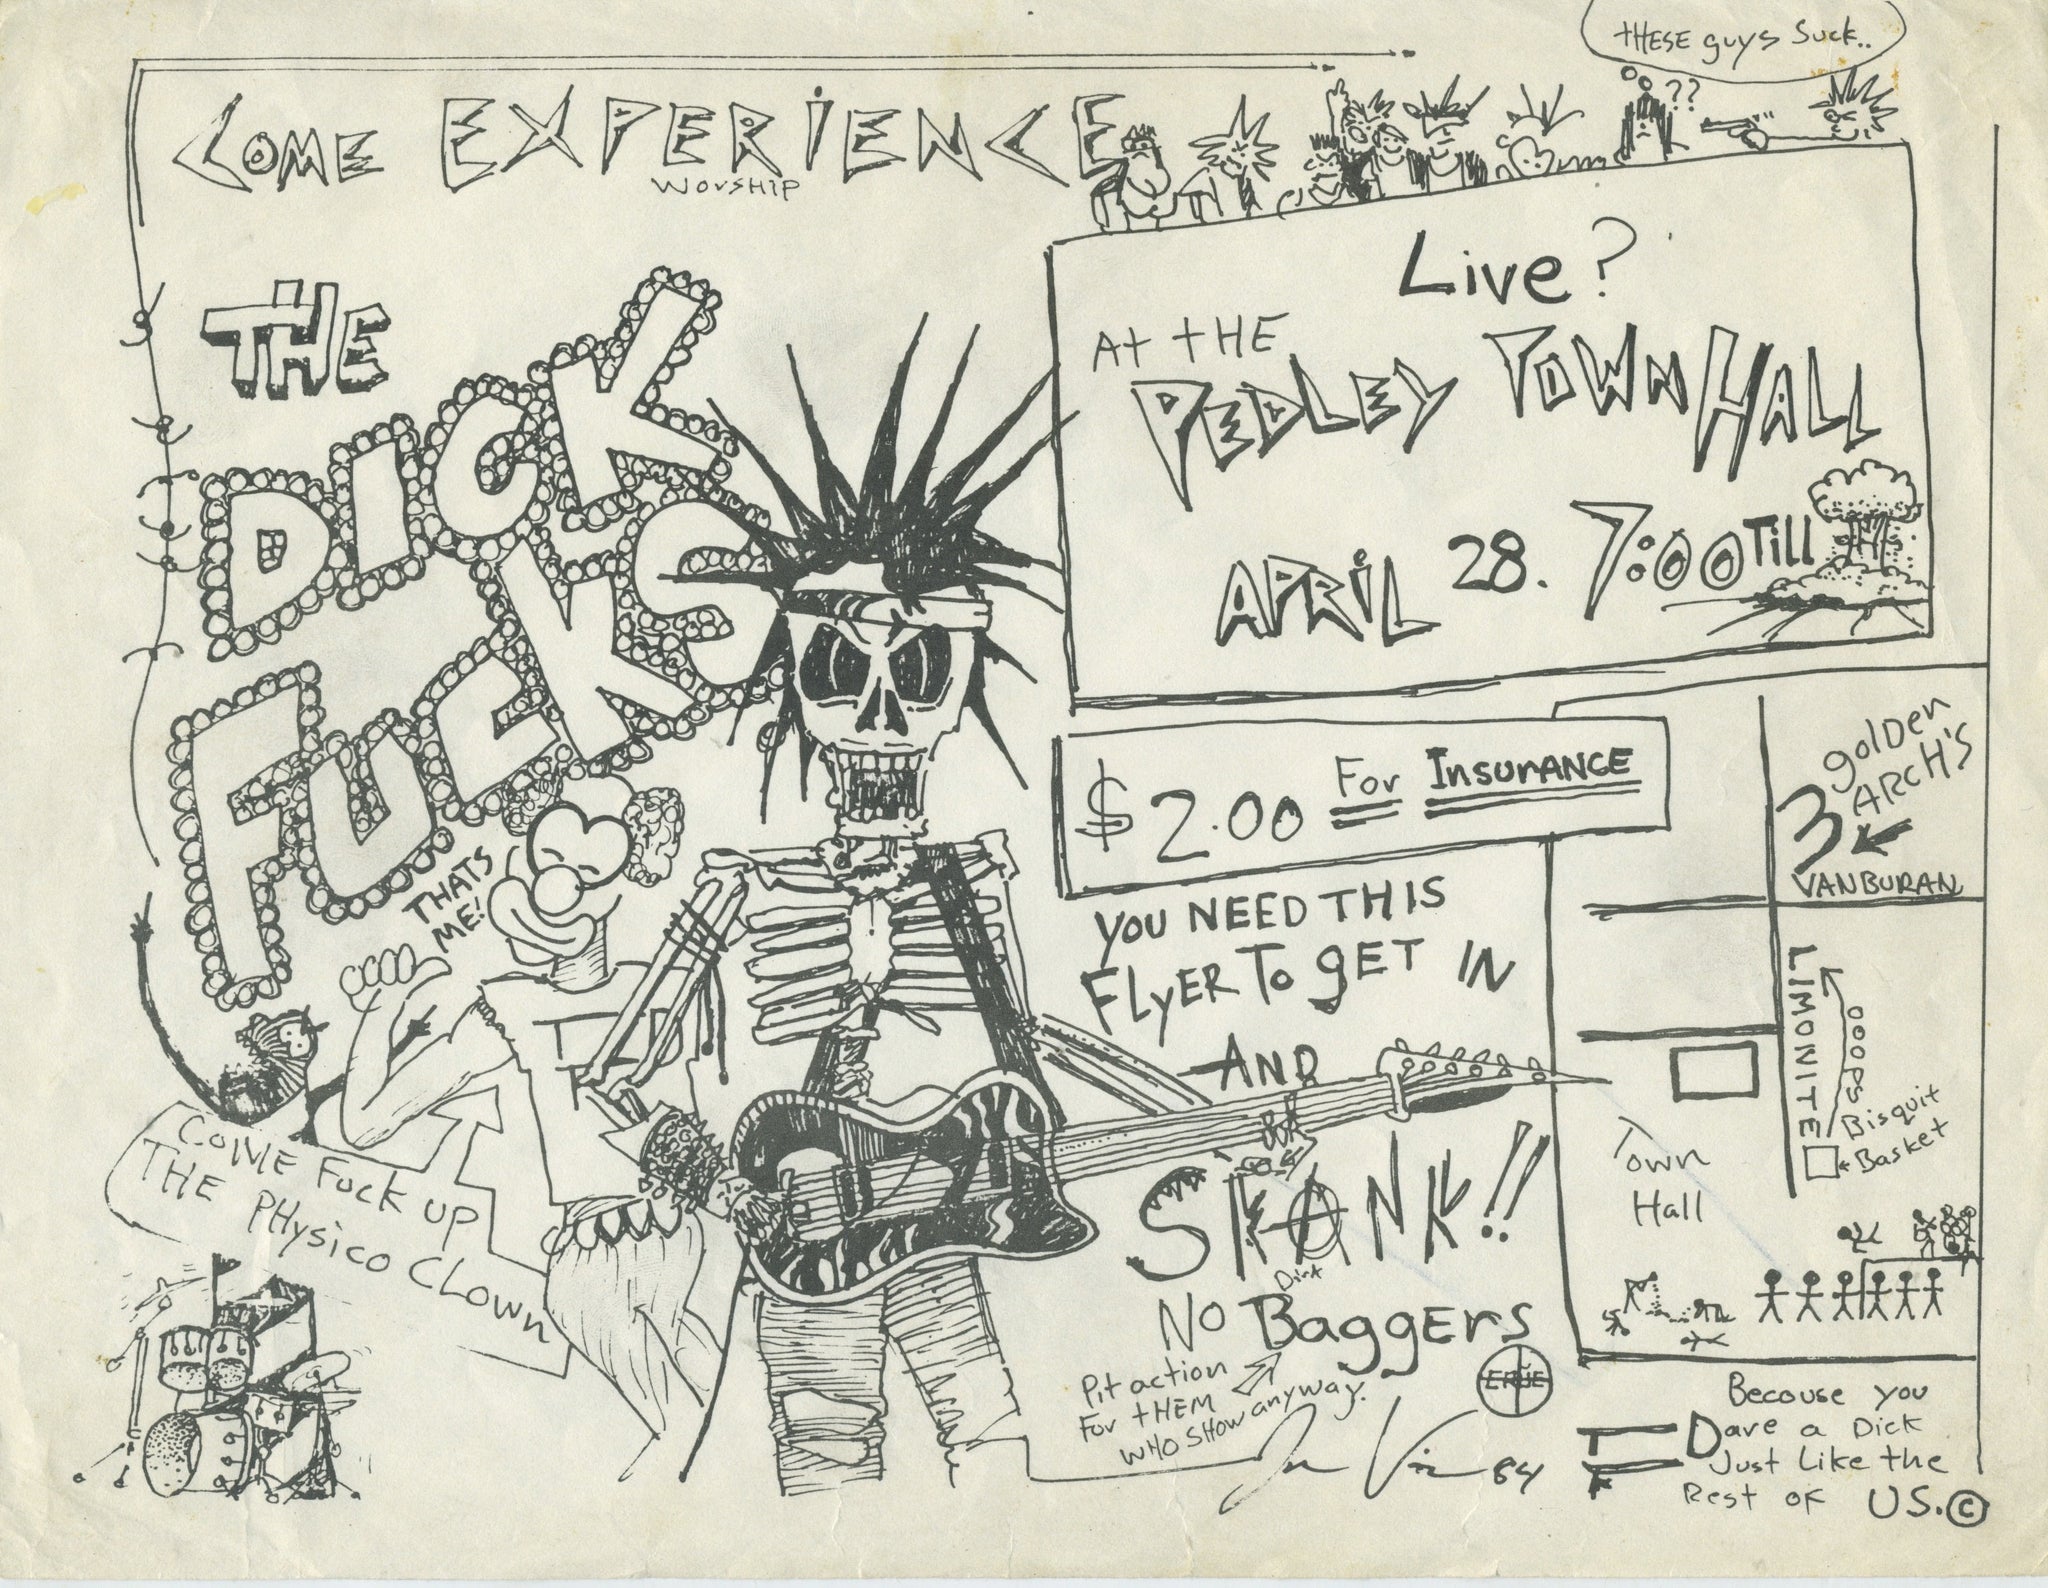 THESE guys Suck..
??
COME EXPERIENCE
WORSHIP
THE
DICK
FUEKS
Live?
At tHE
PEDLEY TOWN HALL
APRiL 28. 7:00 Till
$2.00 For InsurANCE
YOU NEED THIS
FLyER To gET IN
AND
SKANK!!
NO Dirt BaggErs
Pit action
For tHEM
WHO SHow anyway.
84
THATS
ME!
COME FUCK UP
THE PHysico CLown
golDen
ARCH'S
VANBURAN
LIMONITE
OOOPS
Bisquit
Basket
Town
Hall
Becouse you
Dave a Dick
Just Like the
Rest of US.©